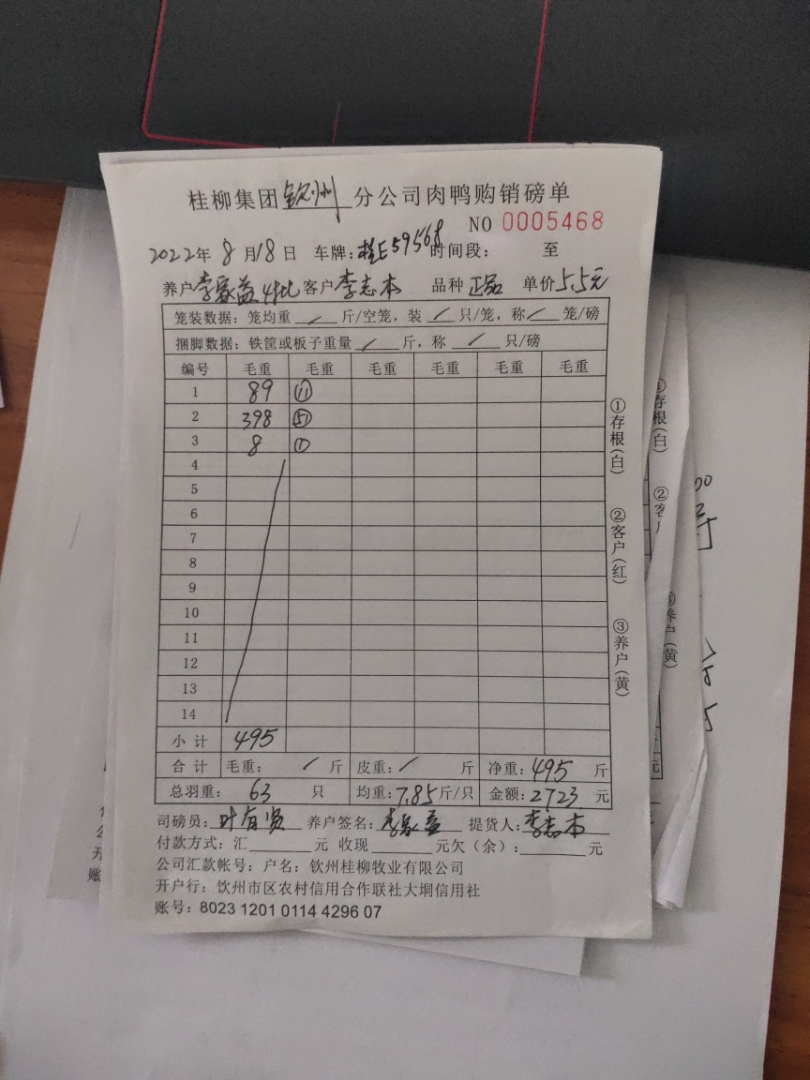 桂柳集团钦州分公司肉鸭购销磅单
NO 0005468
2022年8月18日 车牌:桂E59568 时间段: 至
养户李家益4批 客户李志本 品种 正品 单价5.5元
笼装数据:笼均重 / 斤/空笼,装 / 只/笼,称 / 笼/磅
捆脚数据:铁筐或板子重量 / 斤,称 / 只/磅
编号 毛重 毛重 毛重 毛重 毛重 毛重
1 89 ⑪
2 398 �51
3 8 ①
4
5
6
7
8
9
10
11
12
13
14
小计 495
合计 毛重: / 斤 皮重: / 斤 净重:495 斤
总羽重: 63 只 均重:7.85斤/只 金额:2723 元
司磅员:叶有贤 养户签名:李家益 提货人:李志本
付款方式:汇 元 收现 元欠(余): 元
公司汇款帐号:户名:钦州桂柳牧业有限公司
开户行:钦州市区农村信用合作联社大垌信用社
账号:8023 1201 0114 4296 07
①存根(白) ②客户(红) ③养户(黄)